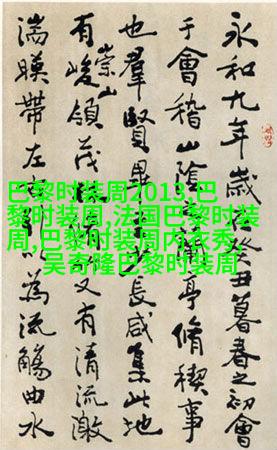 永和九年歲癸丑暮春之初會
于會稽山陰亭脩禊事
也羣賢畢長咸集此地
有崇山峻領茂又有清流激
湍暎帶左以為流觴曲水
巴黎时装周2013,巴
黎时装周,法国巴黎时装
周,巴黎时装周内衣秀,
吴奇隆巴黎时装周